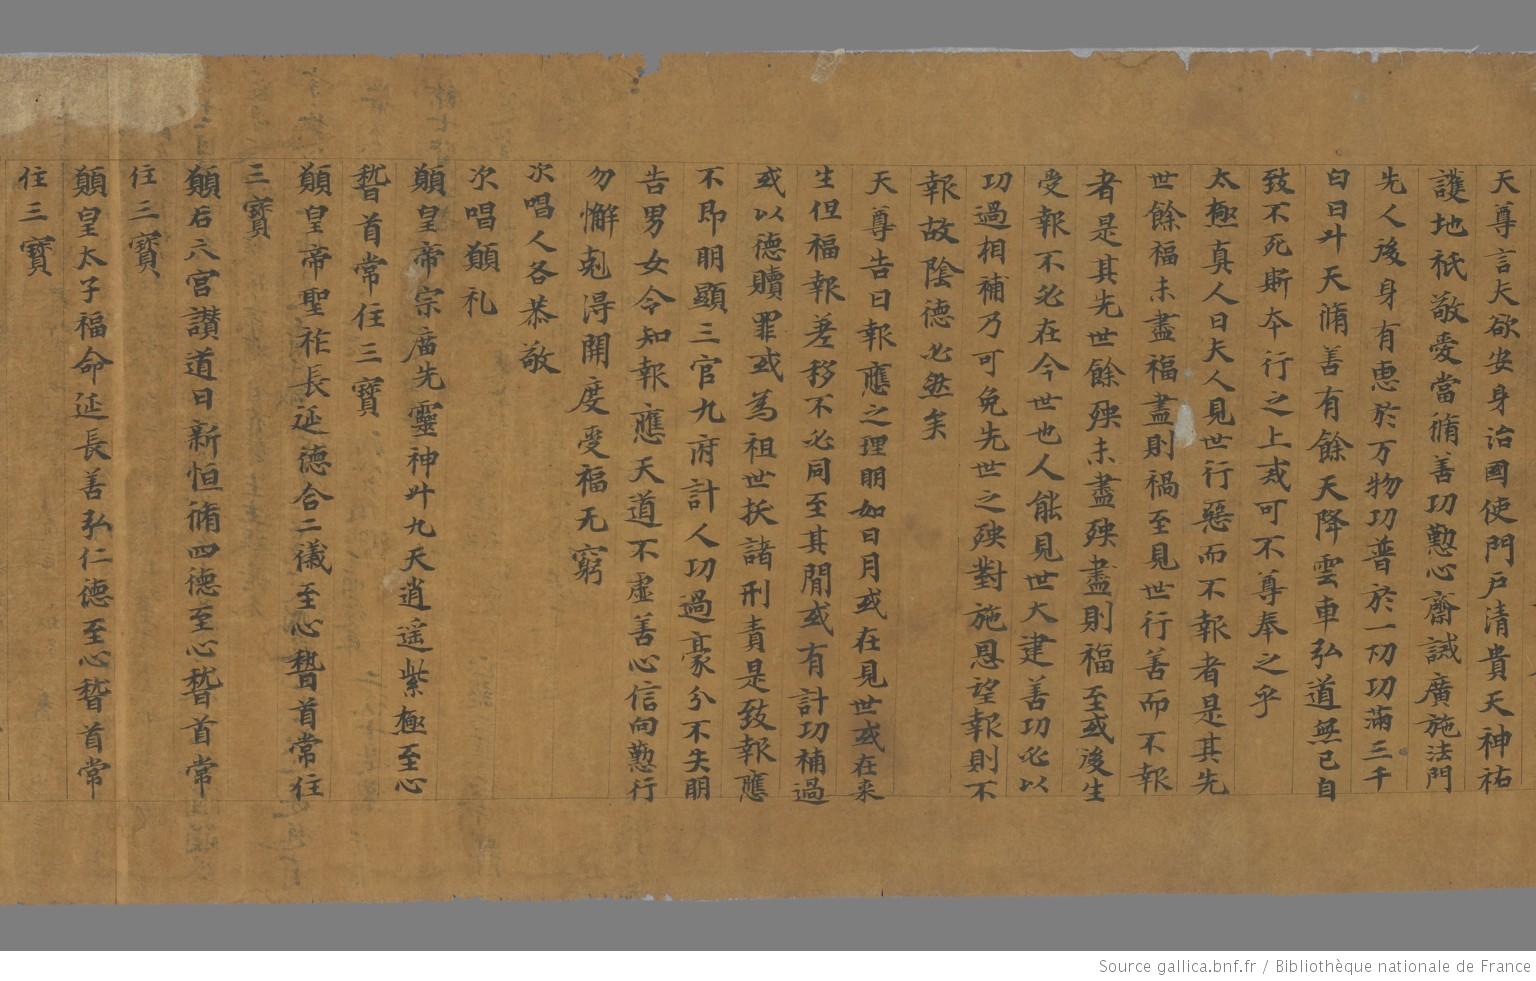 天尊言夫欲安身治國使門戶清貴天神祐
護地祇敬愛當脩善功懃心齋誡廣施法門
先人後身有惠於万物功普於一切功滿三千
白日昇天脩善有餘天降雲車弘道無已自
致不死斯夲行之上或可不尊奉之乎
太極真人曰夫人見世行惡而不報者是其先
世餘福未盡福盡則禍至見世行善而不報
者是其先世餘殃未盡殃盡則福至或後生
受報不必在今世也人能見世大建善功必以
功過相補乃可免先世之殃對施恩望報則不
報故陰德必然矣
天尊告曰報應之理明如日月或在見世或在来
生但福報差移不必同至其閒或有計功補過
或以德贖罪或為祖世扶諸刑責是致報應
不即明顯三官九府計人功過豪分不失明
告男女令知報應天道不虛善心信向懃行
勿懈剋淂開度受福无窮
次唱人各恭敬
次唱願礼
願皇帝宗廟先靈神昇九天逍遥紫極至心
稽首常住三寶
願皇帝聖祚長延德合二儀至心稽首常住
三寶
願后六宮讚道日新恒脩四德至心稽首常
住三寶
願皇太子福命延長善弘仁德至心稽首常
住三寶
Source gallica.bnf.fr / Bibliothèque nationale de France